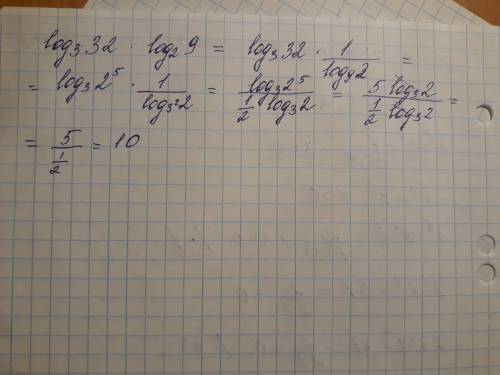 log₃32 · log₂9 = log₃32 · 1/log₉2 =
= log₃2⁵ · 1/log₃²2 = log₃2⁵/(1/2 log₃2) = 5 log₃2/(1/2 log₃2) =
= 5/(1/2) = 10